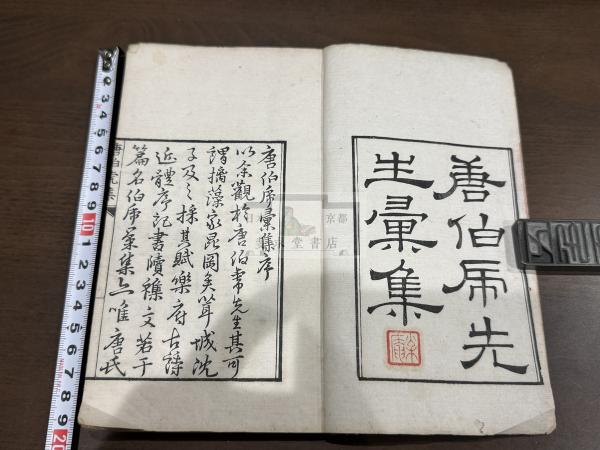 唐伯虎先
生彙集
唐伯虎彙集序
以余觀於唐伯虎先生其可
謂摛藻家昆岡矣茸城沈
子及之採其賦樂府古詩
近體序記書牘襍文若干
篇名伯虎彙集亦唯唐氏
唐伯虎集
京都
堂書店
3 4 5 6 7 8 9 10 1 2 3 4 5 6 7 8 9 20